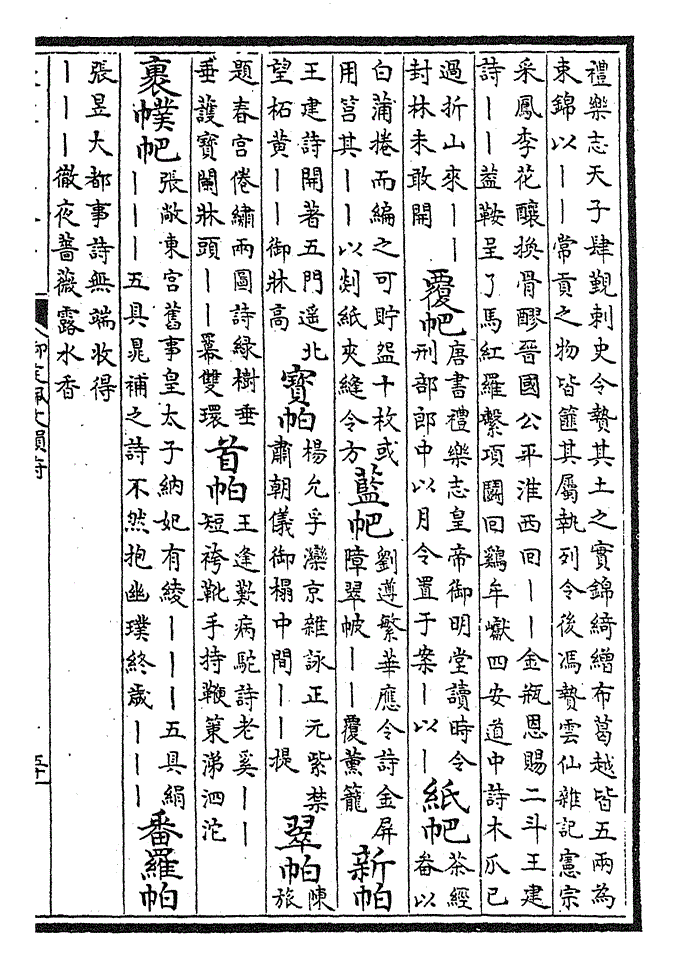 禮樂志天子肆覲刺史令贄其土之實錦綺繒布葛越皆五兩為
束錦以丨丨常貢之物皆篚其屬執列令後馮贄雲仙雜記憲宗
采鳳李花釀換骨醪晉國公平淮西回丨丨金瓶恩賜二斗王建
詩丨丨蓋鞍呈了馬紅羅繫項鬬回鷄牟巘四安道中詩木爪已
過折山來丨丨
封林未敢開
覆帊
唐書禮樂志皇帝御明堂讀時令
刑部郎中以月令置于案丨以丨
紙帊
茶經
畚以
白蒲捲而編之可貯盌十枚或
用筥其丨丨以剡紙夾縫令方
藍帊
劉遵繁華應令詩金屏
障翠帔丨丨覆薰籠
新帕
王建詩開著五門遥北
望柘黄丨丨御牀高
寶帕
楊允孚灤京雜詠正元紫禁
肅朝儀御榻中間丨丨提
翠帕
陳
旅
題春宫倦繡兩圖詩緑樹垂
垂護寶闌牀頭丨丨羃雙環
首帕
王逢歎病駝詩老奚丨丨
短袴靴手持鞭策涕泗沱
裹幞帊
張敞東宫舊事皇太子納妃有綾丨丨丨五具絹
丨丨丨五具晁補之詩不然抱幽璞終歳丨丨丨
番羅帕
張昱大都事詩無端收得
丨丨丨徹夜薔薇露水香